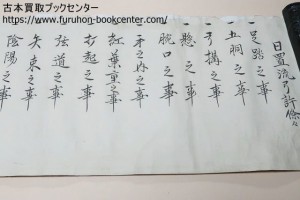 古本買取ブックセンター
https://www.furuhon-bookcenter.com/
日置流弓許條々
一 足踏之事
一 五胴之事
一 弓搆之事
一 懸之事
腕口之事
手之内之事
紅葉重之事
打起之事
弦道之事
矢束之事
陰陽之事